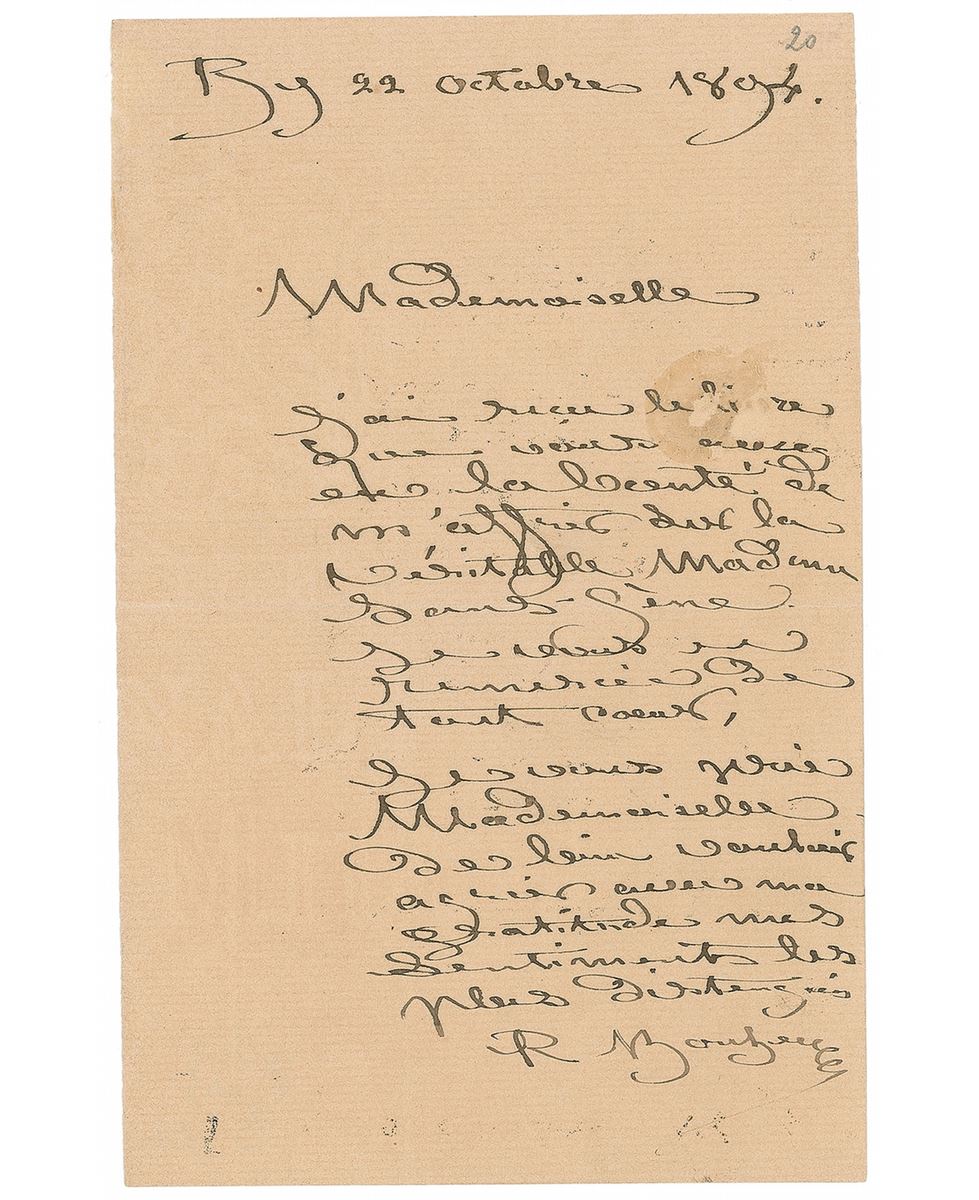 20
By 22 octobre 1894.
Mademoiselle
j'ai reçu le livre
que vous avez
eu la bonté de
m'offrir sur la
Véritable Madame
Sans-Gêne.
Je vous en
remercie de
tout cœur,
Je vous prie
Mademoiselle
de bien vouloir
agréer avec ma
gratitude mes
sentiments les
plus distingués
R Bonheur